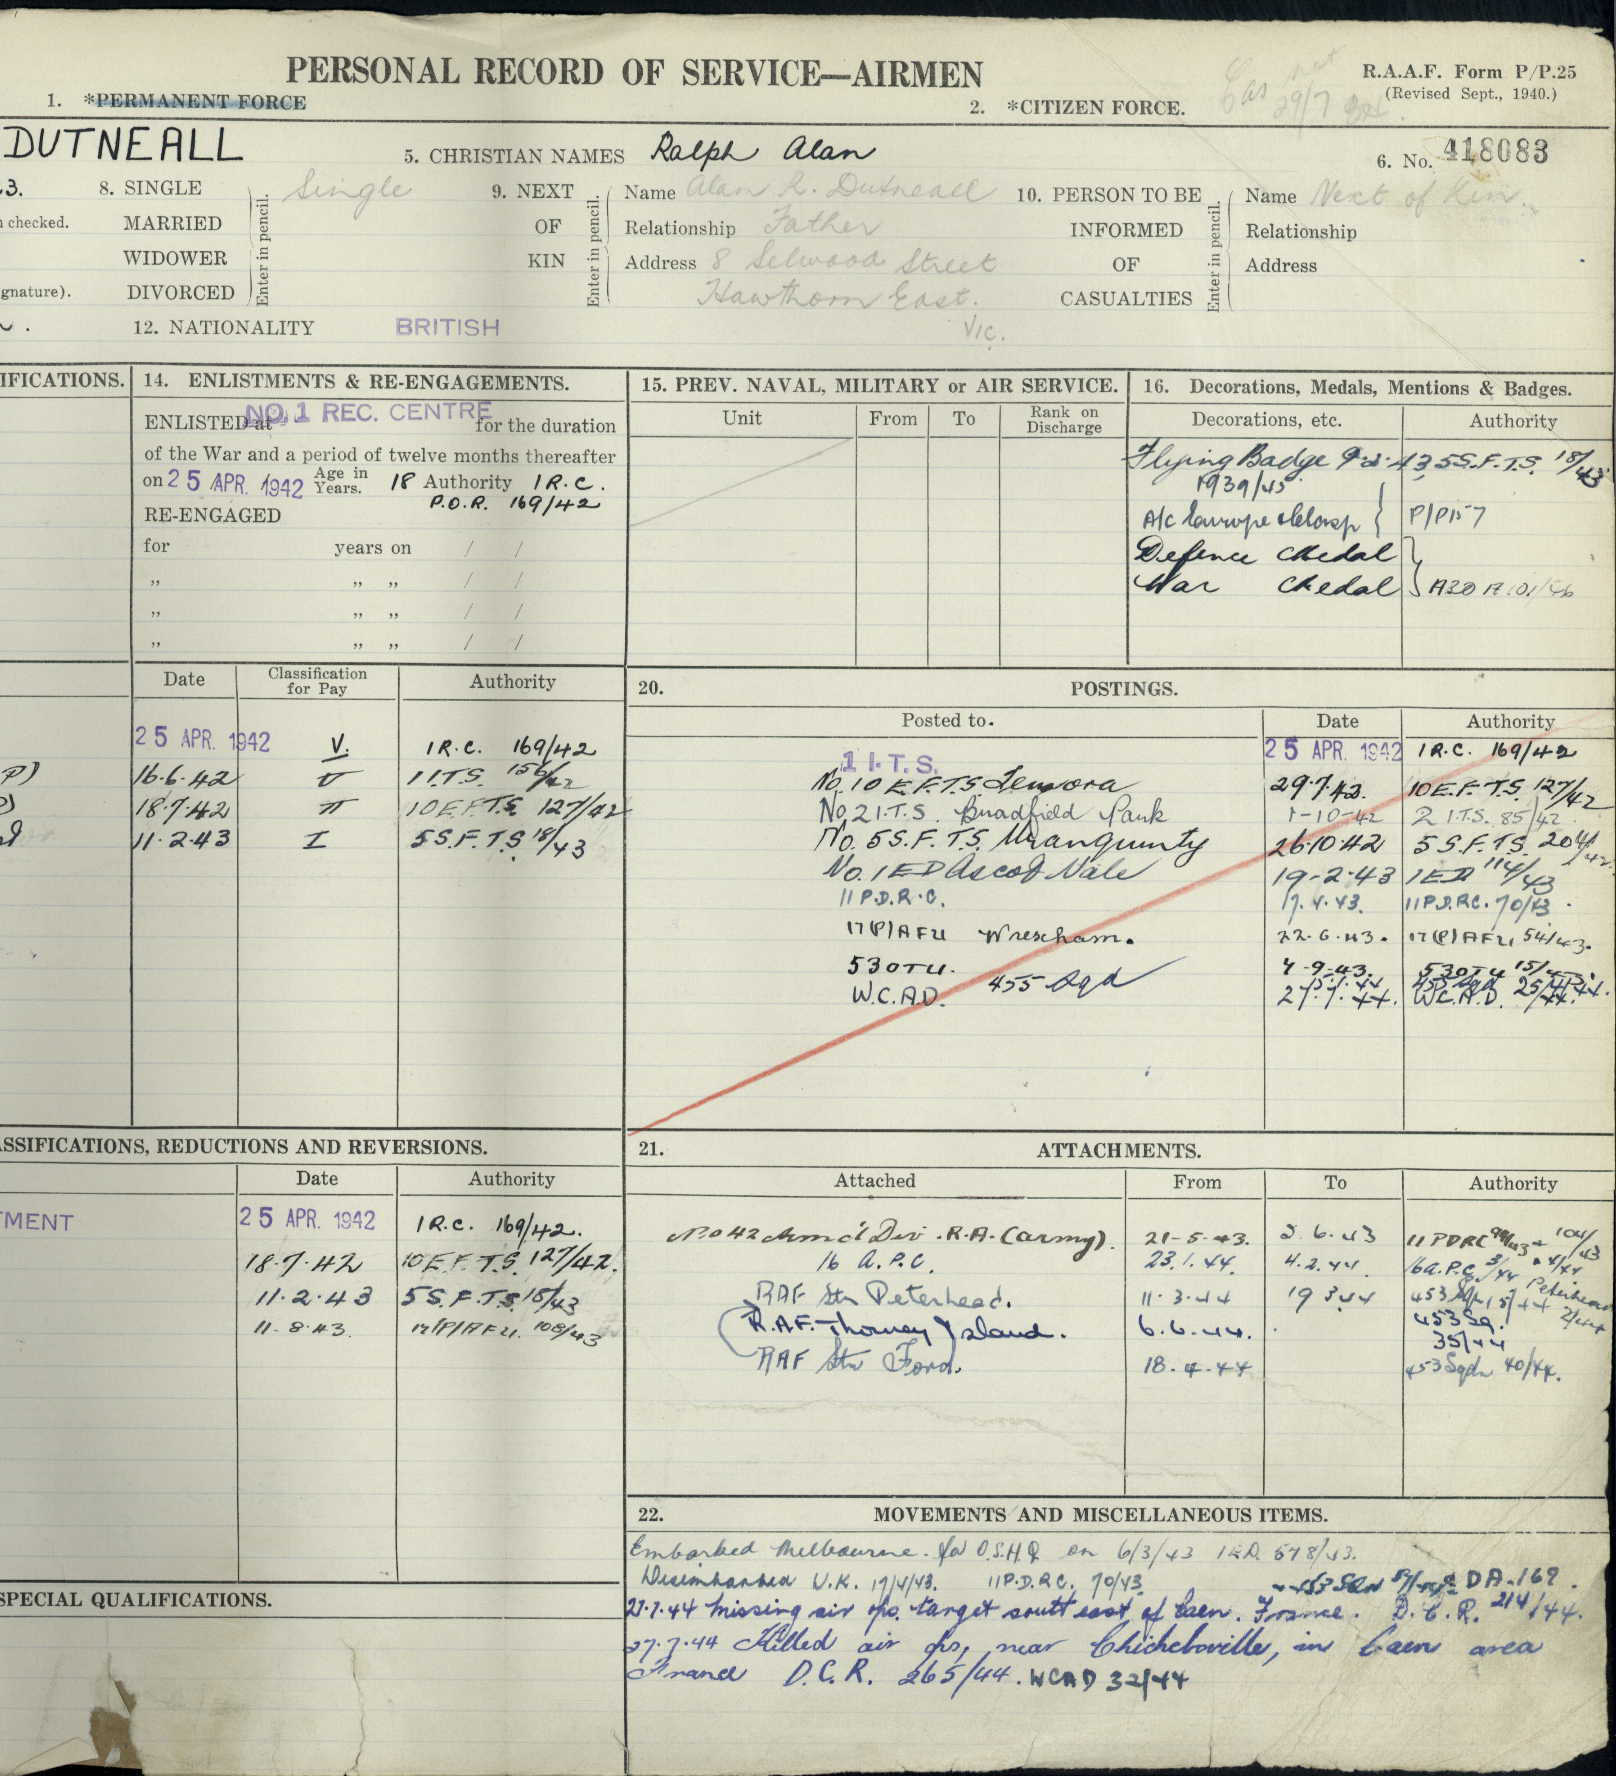 PERSONAL RECORD OF SERVICE—AIRMEN
R.A.A.F. Form P/P.25
(Revised Sept., 1940.)
1. *PERMANENT FORCE
2. *CITIZEN FORCE.
29/7
DUTNEALL
5. CHRISTIAN NAMES Ralph Alan
6. No. 418083
3. 8. SINGLE Single
checked. MARRIED
WIDOWER
gnature). DIVORCED
Enter in pencil.
9. NEXT OF KIN
Enter in pencil.
Name Alan R. Dutneall
Relationship Father
Address 8 Selwood Street
Hawthorn East.
Vic.
10. PERSON TO BE INFORMED OF CASUALTIES
Enter in pencil.
Name Next of Kin.
Relationship
Address
12. NATIONALITY BRITISH
IFICATIONS.
14. ENLISTMENTS & RE-ENGAGEMENTS.
ENLISTED at NO. 1 REC. CENTRE for the duration
of the War and a period of twelve months thereafter
on 25 APR. 1942 Age in Years. 18 Authority 1 R.C.
P.O.R. 169/42
RE-ENGAGED
for years on / /
„ „ „ / /
„ „ „ / /
„ „ „ / /
15. PREV. NAVAL, MILITARY or AIR SERVICE.
Unit From To Rank on Discharge
16. Decorations, Medals, Mentions & Badges.
Decorations, etc. Authority
Flying Badge 5 S.F.T.S. 18/43
1939/45
A/C Europe & Clasp P/P157
Defence Medal
War Medal
Date Classification for Pay Authority
25 APR. 1942 V. 1 R.C. 169/42
16.6.42 V 1 I.T.S. 156/42
18.7.42 II 10 E.F.T.S. 127/42
11.2.43 I 5 S.F.T.S. 18/43
20. POSTINGS.
Posted to. Date Authority
1 I.T.S. 25 APR. 1942 1 R.C. 169/42
No. 10 E.F.T.S. Temora 10 E.F.T.S. 127/42
No. 2 I.T.S. Bradfield Park 1-10-42 2 I.T.S. 85/42
No. 5 S.F.T.S. Uranquinty 26.10.42 5 S.F.T.S.
No. 1 ED Ascot Vale 19-2-43 1 ED 114/43
11 P.D.R.C. 17.4.43. 11 P.D.R.C. 70/43.
17(P)AFU Wrexham. 22.6.43. 17(P)AFU 54/43.
53 OTU. 7-9-43. 53 OTU
W.C.A.D. 27.7.44. W.C.A.D. 25/44.
ASSIFICATIONS, REDUCTIONS AND REVERSIONS.
Date Authority
TMENT 25 APR. 1942 1 R.C. 169/42.
18.7.42 10 E.F.T.S. 127/42.
11.2.43 5 S.F.T.S. 18/43
11.8.43. 17(P)AFU. 108/43
21. ATTACHMENTS.
Attached From To Authority
No 42 Arm'd Div. R.A. (Army). 21-5-43. 5.6.43 11 PDRC
16 A.P.C. 23.1.44. 4.2.44. 16 A.P.C.
RAF Stn Peterhead. 11.3.44 19 3 44 453 Peterhead
R.A.F. Thorney Island. 6.6.44. 453 Sq.
35/44
RAF Stn Ford. 18.4.44 453 Sqdn 40/44.
SPECIAL QUALIFICATIONS.
22. MOVEMENTS AND MISCELLANEOUS ITEMS.
Embarked Melbourne. for O.S.H.Q on 6/3/43 1 ED. 578/43.
Disembarked U.K. 17/4/43. 11 P.D.R.C. 70/43. DA.169.
27.7.44 Missing air ops. target south east of Caen. France. D.C.R. 214/44.
27.7.44 Killed air ops, near Chicheboville, in Caen area
France D.C.R. 265/44. WCAD 32/44